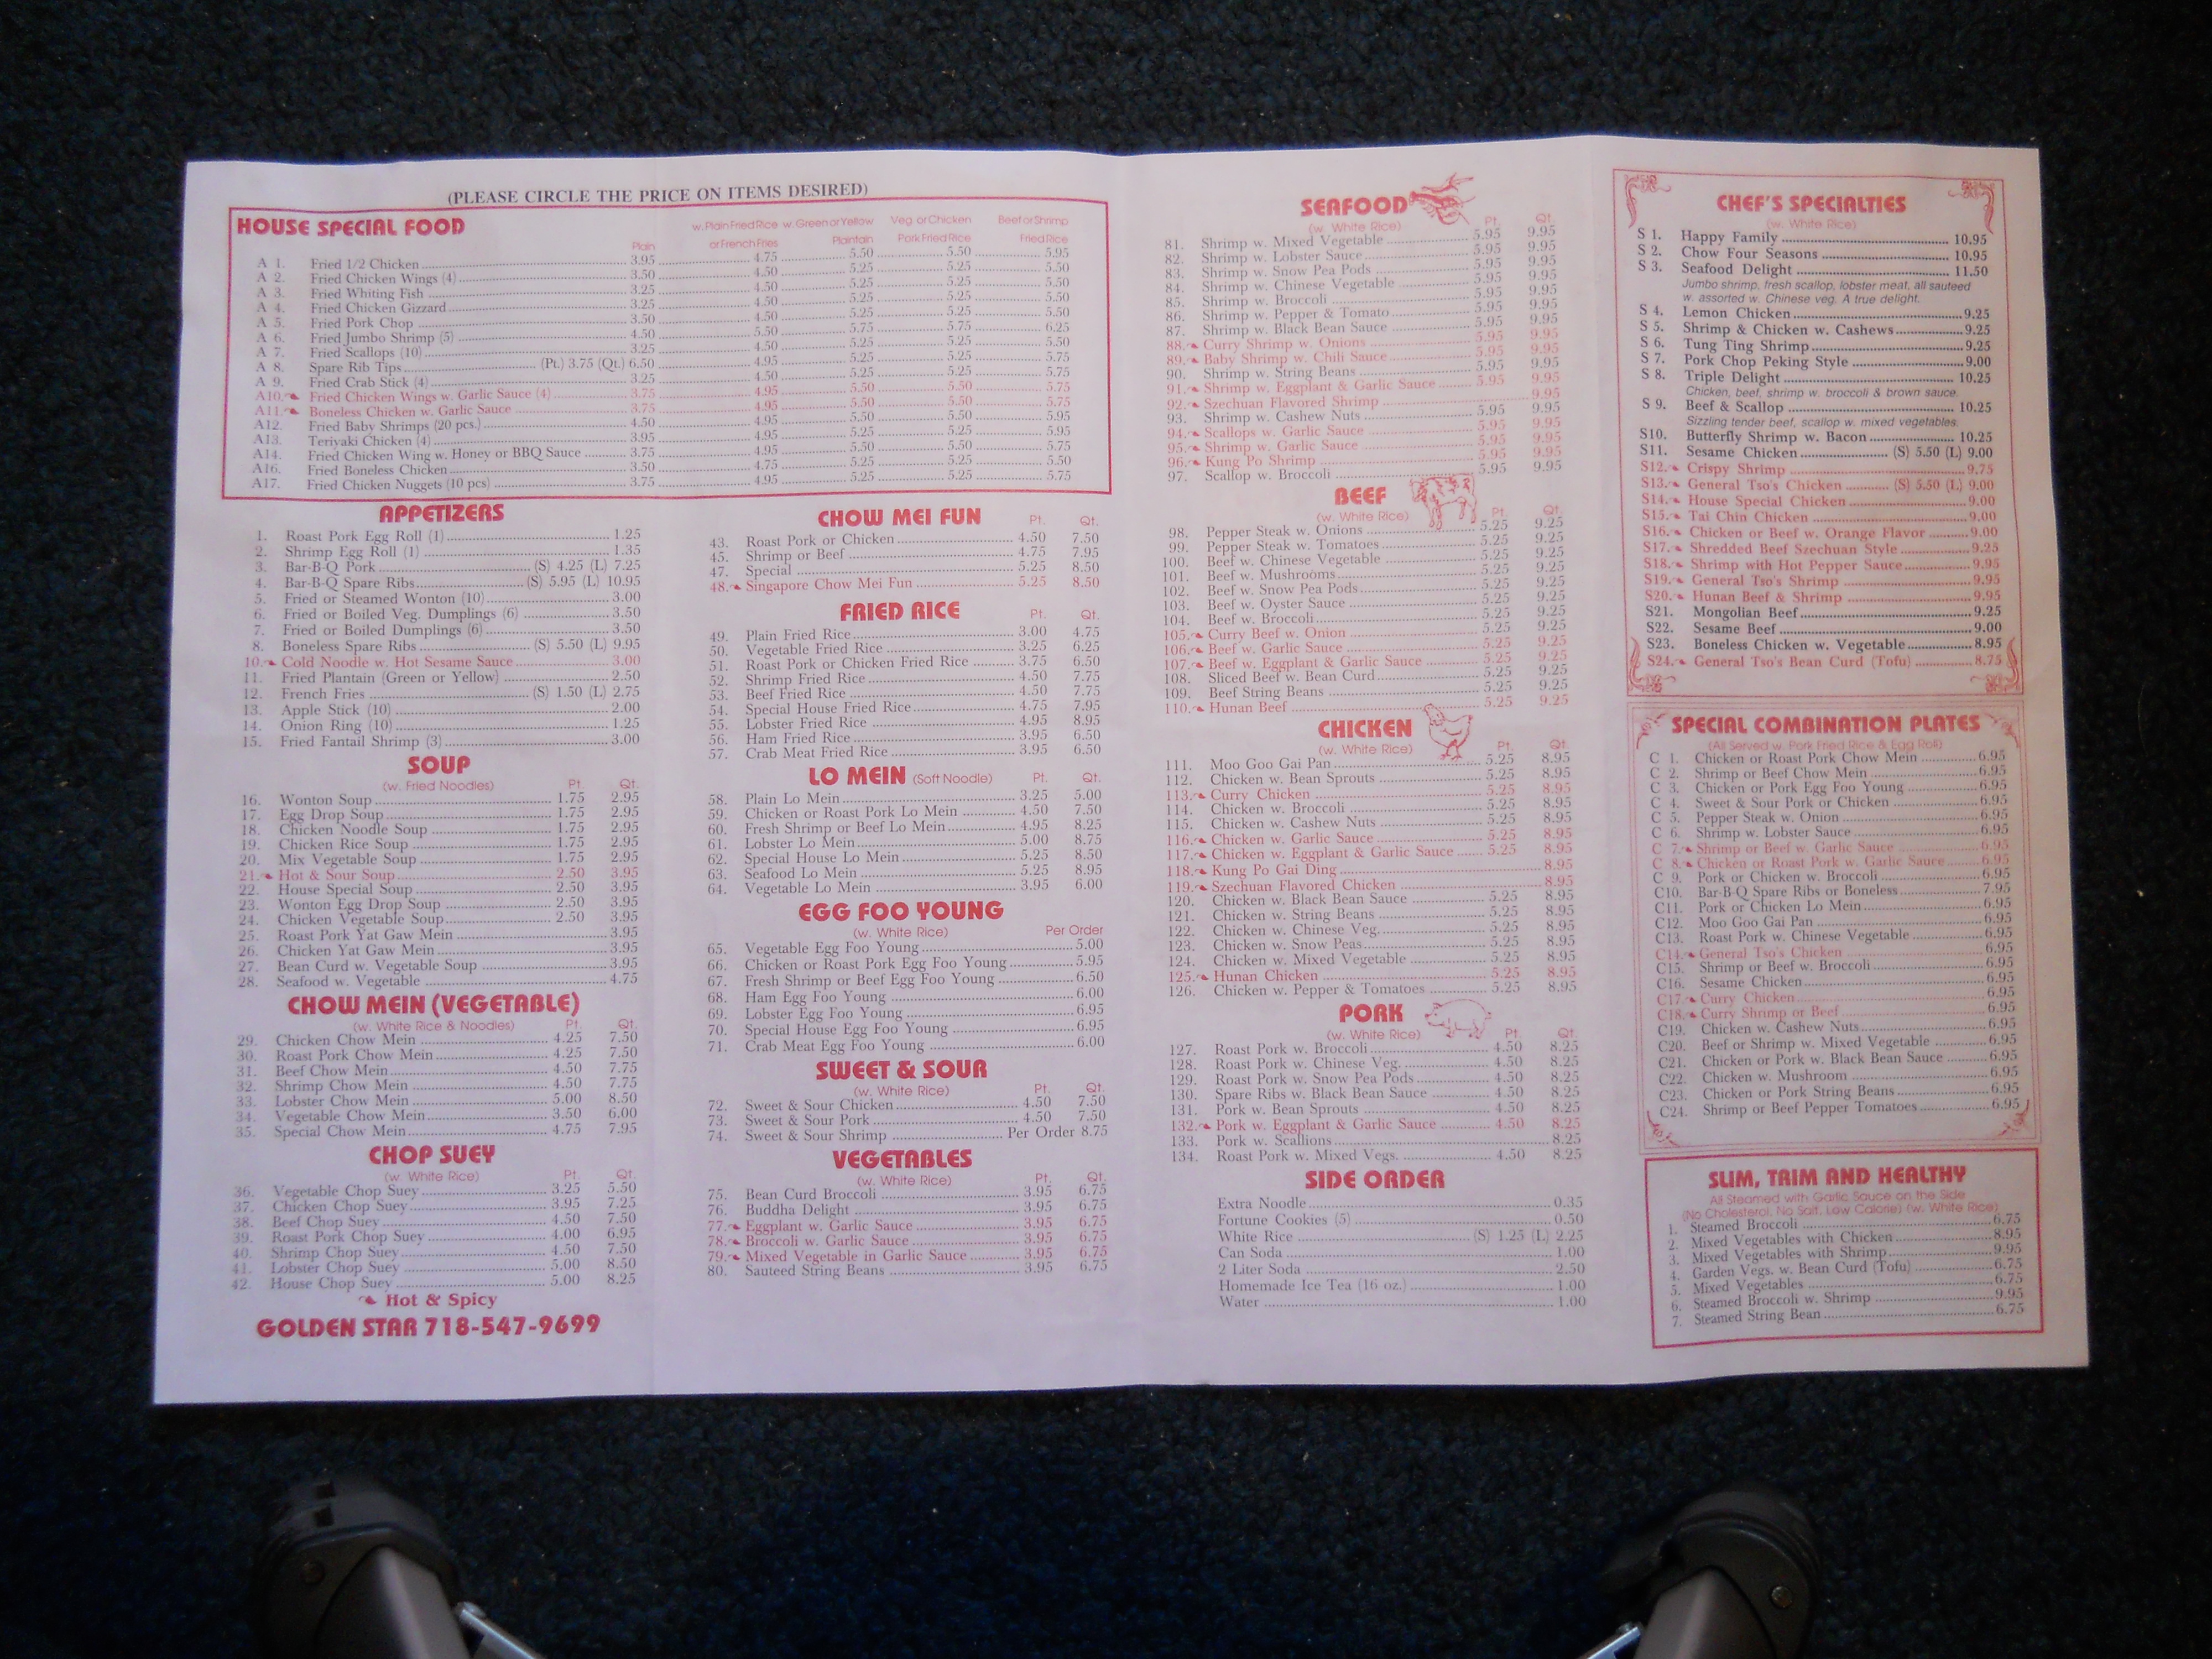 (PLEASE CIRCLE THE PRICE ON ITEMS DESIRED)
HOUSE SPECIAL FOOD
Plain
w. Plain Fried Rice or French Fries
w. Green or Yellow Plantain
Veg. or Chicken Pork Fried Rice
Beef or Shrimp Fried Rice
A 1. Fried 1/2 Chicken 3.95 4.75 5.50 5.50 5.95
A 2. Fried Chicken Wings (4) 3.50 4.50 5.25 5.25 5.50
A 3. Fried Whiting Fish 3.25 4.50 5.25 5.25 5.50
A 4. Fried Chicken Gizzard 3.25 4.50 5.25 5.25 5.50
A 5. Fried Pork Chop 3.50 4.50 5.25 5.25 5.50
A 6. Fried Jumbo Shrimp (5) 4.50 5.50 5.75 5.75 6.25
A 7. Fried Scallops (10) 3.25 4.50 5.25 5.25 5.50
A 8. Spare Rib Tips (Pt.) 3.75 (Qt.) 6.50 4.95 5.25 5.25 5.75
A 9. Fried Crab Stick (4) 3.25 4.50 5.25 5.25 5.75
A10. Fried Chicken Wings w. Garlic Sauce (4) 3.75 4.95 5.50 5.50 5.75
A11. Boneless Chicken w. Garlic Sauce 3.75 4.95 5.50 5.50 5.75
A12. Fried Baby Shrimps (20 pcs.) 4.50 4.95 5.50 5.50 5.95
A13. Teriyaki Chicken (4) 3.95 4.95 5.25 5.25 5.95
A14. Fried Chicken Wing w. Honey or BBQ Sauce 3.75 4.95 5.50 5.50 5.75
A16. Fried Boneless Chicken 3.50 4.75 5.25 5.25 5.50
A17. Fried Chicken Nuggets (10 pcs) 3.75 4.95 5.25 5.25 5.75
APPETIZERS
1. Roast Pork Egg Roll (1) 1.25
2. Shrimp Egg Roll (1) 1.35
3. Bar-B-Q Pork (S) 4.25 (L) 7.25
4. Bar-B-Q Spare Ribs (S) 5.95 (L) 10.95
5. Fried or Steamed Wonton (10) 3.00
6. Fried or Boiled Veg. Dumplings (6) 3.50
7. Fried or Boiled Dumplings (6) 3.50
8. Boneless Spare Ribs (S) 5.50 (L) 9.95
10. Cold Noodle w. Hot Sesame Sauce 3.00
11. Fried Plantain (Green or Yellow) 2.50
12. French Fries (S) 1.50 (L) 2.75
13. Apple Stick (10) 2.00
14. Onion Ring (10) 1.25
15. Fried Fantail Shrimp (3) 3.00
SOUP
(w. Fried Noodles) Pt. Qt.
16. Wonton Soup 1.75 2.95
17. Egg Drop Soup 1.75 2.95
18. Chicken Noodle Soup 1.75 2.95
19. Chicken Rice Soup 1.75 2.95
20. Mix Vegetable Soup 1.75 2.95
21. Hot & Sour Soup 2.50 3.95
22. House Special Soup 2.50 3.95
23. Wonton Egg Drop Soup 2.50 3.95
24. Chicken Vegetable Soup 2.50 3.95
25. Roast Pork Yat Gaw Mein 3.95
26. Chicken Yat Gaw Mein 3.95
27. Bean Curd w. Vegetable Soup 3.95
28. Seafood w. Vegetable 4.75
CHOW MEIN (VEGETABLE)
(w. White Rice & Noodles) Pt. Qt.
29. Chicken Chow Mein 4.25 7.50
30. Roast Pork Chow Mein 4.25 7.50
31. Beef Chow Mein 4.50 7.75
32. Shrimp Chow Mein 4.50 7.75
33. Lobster Chow Mein 5.00 8.50
34. Vegetable Chow Mein 3.50 6.00
35. Special Chow Mein 4.75 7.95
CHOP SUEY
(w. White Rice) Pt. Qt.
36. Vegetable Chop Suey 3.25 5.50
37. Chicken Chop Suey 3.95 7.25
38. Beef Chop Suey 4.50 7.50
39. Roast Pork Chop Suey 4.00 6.95
40. Shrimp Chop Suey 4.50 7.50
41. Lobster Chop Suey 5.00 8.50
42. House Chop Suey 5.00 8.25
Hot & Spicy
GOLDEN STAR 718-547-9699
CHOW MEI FUN Pt. Qt.
43. Roast Pork or Chicken 4.50 7.50
45. Shrimp or Beef 4.75 7.95
47. Special 5.25 8.50
48. Singapore Chow Mei Fun 5.25 8.50
FRIED RICE Pt. Qt.
49. Plain Fried Rice 3.00 4.75
50. Vegetable Fried Rice 3.25 6.25
51. Roast Pork or Chicken Fried Rice 3.75 6.50
52. Shrimp Fried Rice 4.50 7.75
53. Beef Fried Rice 4.50 7.75
54. Special House Fried Rice 4.75 7.95
55. Lobster Fried Rice 4.95 8.95
56. Ham Fried Rice 3.95 6.50
57. Crab Meat Fried Rice 3.95 6.50
LO MEIN (Soft Noodle) Pt. Qt.
58. Plain Lo Mein 3.25 5.00
59. Chicken or Roast Pork Lo Mein 4.50 7.50
60. Fresh Shrimp or Beef Lo Mein 4.95 8.25
61. Lobster Lo Mein 5.00 8.75
62. Special House Lo Mein 5.25 8.50
63. Seafood Lo Mein 5.25 8.95
64. Vegetable Lo Mein 3.95 6.00
EGG FOO YOUNG
(w. White Rice) Per Order
65. Vegetable Egg Foo Young 5.00
66. Chicken or Roast Pork Egg Foo Young 5.95
67. Fresh Shrimp or Beef Egg Foo Young 6.50
68. Ham Egg Foo Young 6.00
69. Lobster Egg Foo Young 6.95
70. Special House Egg Foo Young 6.95
71. Crab Meat Egg Foo Young 6.00
SWEET & SOUR
(w. White Rice) Pt. Qt.
72. Sweet & Sour Chicken 4.50 7.50
73. Sweet & Sour Pork 4.50 7.50
74. Sweet & Sour Shrimp Per Order 8.75
VEGETABLES
(w. White Rice) Pt. Qt.
75. Bean Curd Broccoli 3.95 6.75
76. Buddha Delight 3.95 6.75
77. Eggplant w. Garlic Sauce 3.95 6.75
78. Broccoli w. Garlic Sauce 3.95 6.75
79. Mixed Vegetable in Garlic Sauce 3.95 6.75
80. Sauteed String Beans 3.95 6.75
SEAFOOD
(w. White Rice) Pt. Qt.
81. Shrimp w. Mixed Vegetable 5.95 9.95
82. Shrimp w. Lobster Sauce 5.95 9.95
83. Shrimp w. Snow Pea Pods 5.95 9.95
84. Shrimp w. Chinese Vegetable 5.95 9.95
85. Shrimp w. Broccoli 5.95 9.95
86. Shrimp w. Pepper & Tomato 5.95 9.95
87. Shrimp w. Black Bean Sauce 5.95 9.95
88. Curry Shrimp w. Onions 5.95 9.95
89. Baby Shrimp w. Chili Sauce 5.95 9.95
90. Shrimp w. String Beans 5.95 9.95
91. Shrimp w. Eggplant & Garlic Sauce 5.95 9.95
92. Szechuan Flavored Shrimp 9.95
93. Shrimp w. Cashew Nuts 5.95 9.95
94. Scallops w. Garlic Sauce 5.95 9.95
95. Shrimp w. Garlic Sauce 5.95 9.95
96. Kung Po Shrimp 5.95 9.95
97. Scallop w. Broccoli 5.95 9.95
BEEF
(w. White Rice) Pt. Qt.
98. Pepper Steak w. Onions 5.25 9.25
99. Pepper Steak w. Tomatoes 5.25 9.25
100. Beef w. Chinese Vegetable 5.25 9.25
101. Beef w. Mushrooms 5.25 9.25
102. Beef w. Snow Pea Pods 5.25 9.25
103. Beef w. Oyster Sauce 5.25 9.25
104. Beef w. Broccoli 5.25 9.25
105. Curry Beef w. Onion 5.25 9.25
106. Beef w. Garlic Sauce 5.25 9.25
107. Beef w. Eggplant & Garlic Sauce 5.25 9.25
108. Sliced Beef w. Bean Curd 5.25 9.25
109. Beef String Beans 5.25 9.25
110. Hunan Beef 5.25 9.25
CHICKEN
(w. White Rice) Pt. Qt.
111. Moo Goo Gai Pan 5.25 8.95
112. Chicken w. Bean Sprouts 5.25 8.95
113. Curry Chicken 5.25 8.95
114. Chicken w. Broccoli 5.25 8.95
115. Chicken w. Cashew Nuts 5.25 8.95
116. Chicken w. Garlic Sauce 5.25 8.95
117. Chicken w. Eggplant & Garlic Sauce 5.25 8.95
118. Kung Po Gai Ding 8.95
119. Szechuan Flavored Chicken 8.95
120. Chicken w. Black Bean Sauce 5.25 8.95
121. Chicken w. String Beans 5.25 8.95
122. Chicken w. Chinese Veg. 5.25 8.95
123. Chicken w. Snow Peas 5.25 8.95
124. Chicken w. Mixed Vegetable 5.25 8.95
125. Hunan Chicken 5.25 8.95
126. Chicken w. Pepper & Tomatoes 5.25 8.95
PORK
(w. White Rice) Pt. Qt.
127. Roast Pork w. Broccoli 4.50 8.25
128. Roast Pork w. Chinese Veg. 4.50 8.25
129. Roast Pork w. Snow Pea Pods 4.50 8.25
130. Spare Ribs w. Black Bean Sauce 4.50 8.25
131. Pork w. Bean Sprouts 4.50 8.25
132. Pork w. Eggplant & Garlic Sauce 4.50 8.25
133. Pork w. Scallions 8.25
134. Roast Pork w. Mixed Vegs. 4.50 8.25
SIDE ORDER
Extra Noodle 0.35
Fortune Cookies (5) 0.50
White Rice (S) 1.25 (L) 2.25
Can Soda 1.00
2 Liter Soda 2.50
Homemade Ice Tea (16 oz.) 1.00
Water 1.00
CHEF'S SPECIALTIES
(w. White Rice)
S 1. Happy Family 10.95
S 2. Chow Four Seasons 10.95
S 3. Seafood Delight 11.50
Jumbo shrimp, fresh scallop, lobster meat, all sauteed
w. assorted w. Chinese veg. A true delight.
S 4. Lemon Chicken 9.25
S 5. Shrimp & Chicken w. Cashews 9.25
S 6. Tung Ting Shrimp 9.25
S 7. Pork Chop Peking Style 9.00
S 8. Triple Delight 10.25
Chicken, beef, shrimp w. broccoli & brown sauce.
S 9. Beef & Scallop 10.25
Sizzling tender beef, scallop w. mixed vegetables.
S10. Butterfly Shrimp w. Bacon 10.25
S11. Sesame Chicken (S) 5.50 (L) 9.00
S12. Crispy Shrimp 9.75
S13. General Tso's Chicken (S) 5.50 (L) 9.00
S14. House Special Chicken 9.00
S15. Tai Chin Chicken 9.00
S16. Chicken or Beef w. Orange Flavor 9.00
S17. Shredded Beef Szechuan Style 9.25
S18. Shrimp with Hot Pepper Sauce 9.95
S19. General Tso's Shrimp 9.95
S20. Hunan Beef & Shrimp 9.95
S21. Mongolian Beef 9.25
S22. Sesame Beef 9.00
S23. Boneless Chicken w. Vegetable 8.95
S24. General Tso's Bean Curd (Tofu) 8.75
SPECIAL COMBINATION PLATES
(All Served w. Pork Fried Rice & Egg Roll)
C 1. Chicken or Roast Pork Chow Mein 6.95
C 2. Shrimp or Beef Chow Mein 6.95
C 3. Chicken or Pork Egg Foo Young 6.95
C 4. Sweet & Sour Pork or Chicken 6.95
C 5. Pepper Steak w. Onion 6.95
C 6. Shrimp w. Lobster Sauce 6.95
C 7. Shrimp or Beef w. Garlic Sauce 6.95
C 8. Chicken or Roast Pork w. Garlic Sauce 6.95
C 9. Pork or Chicken w. Broccoli 6.95
C10. Bar-B-Q Spare Ribs or Boneless 7.95
C11. Pork or Chicken Lo Mein 6.95
C12. Moo Goo Gai Pan 6.95
C13. Roast Pork w. Chinese Vegetable 6.95
C14. General Tso's Chicken 6.95
C15. Shrimp or Beef w. Broccoli 6.95
C16. Sesame Chicken 6.95
C17. Curry Chicken 6.95
C18. Curry Shrimp or Beef 6.95
C19. Chicken w. Cashew Nuts 6.95
C20. Beef or Shrimp w. Mixed Vegetable 6.95
C21. Chicken or Pork w. Black Bean Sauce 6.95
C22. Chicken w. Mushroom 6.95
C23. Chicken or Pork String Beans 6.95
C24. Shrimp or Beef Pepper Tomatoes 6.95
SLIM, TRIM AND HEALTHY
All Steamed with Garlic Sauce on the Side
(No Cholesterol, No Salt, Low Calorie) (w. White Rice)
1. Steamed Broccoli 6.75
2. Mixed Vegetables with Chicken 8.95
3. Mixed Vegetables with Shrimp 9.95
4. Garden Vegs. w. Bean Curd (Tofu) 6.75
5. Mixed Vegetables 6.75
6. Steamed Broccoli w. Shrimp 9.95
7. Steamed String Bean 6.75